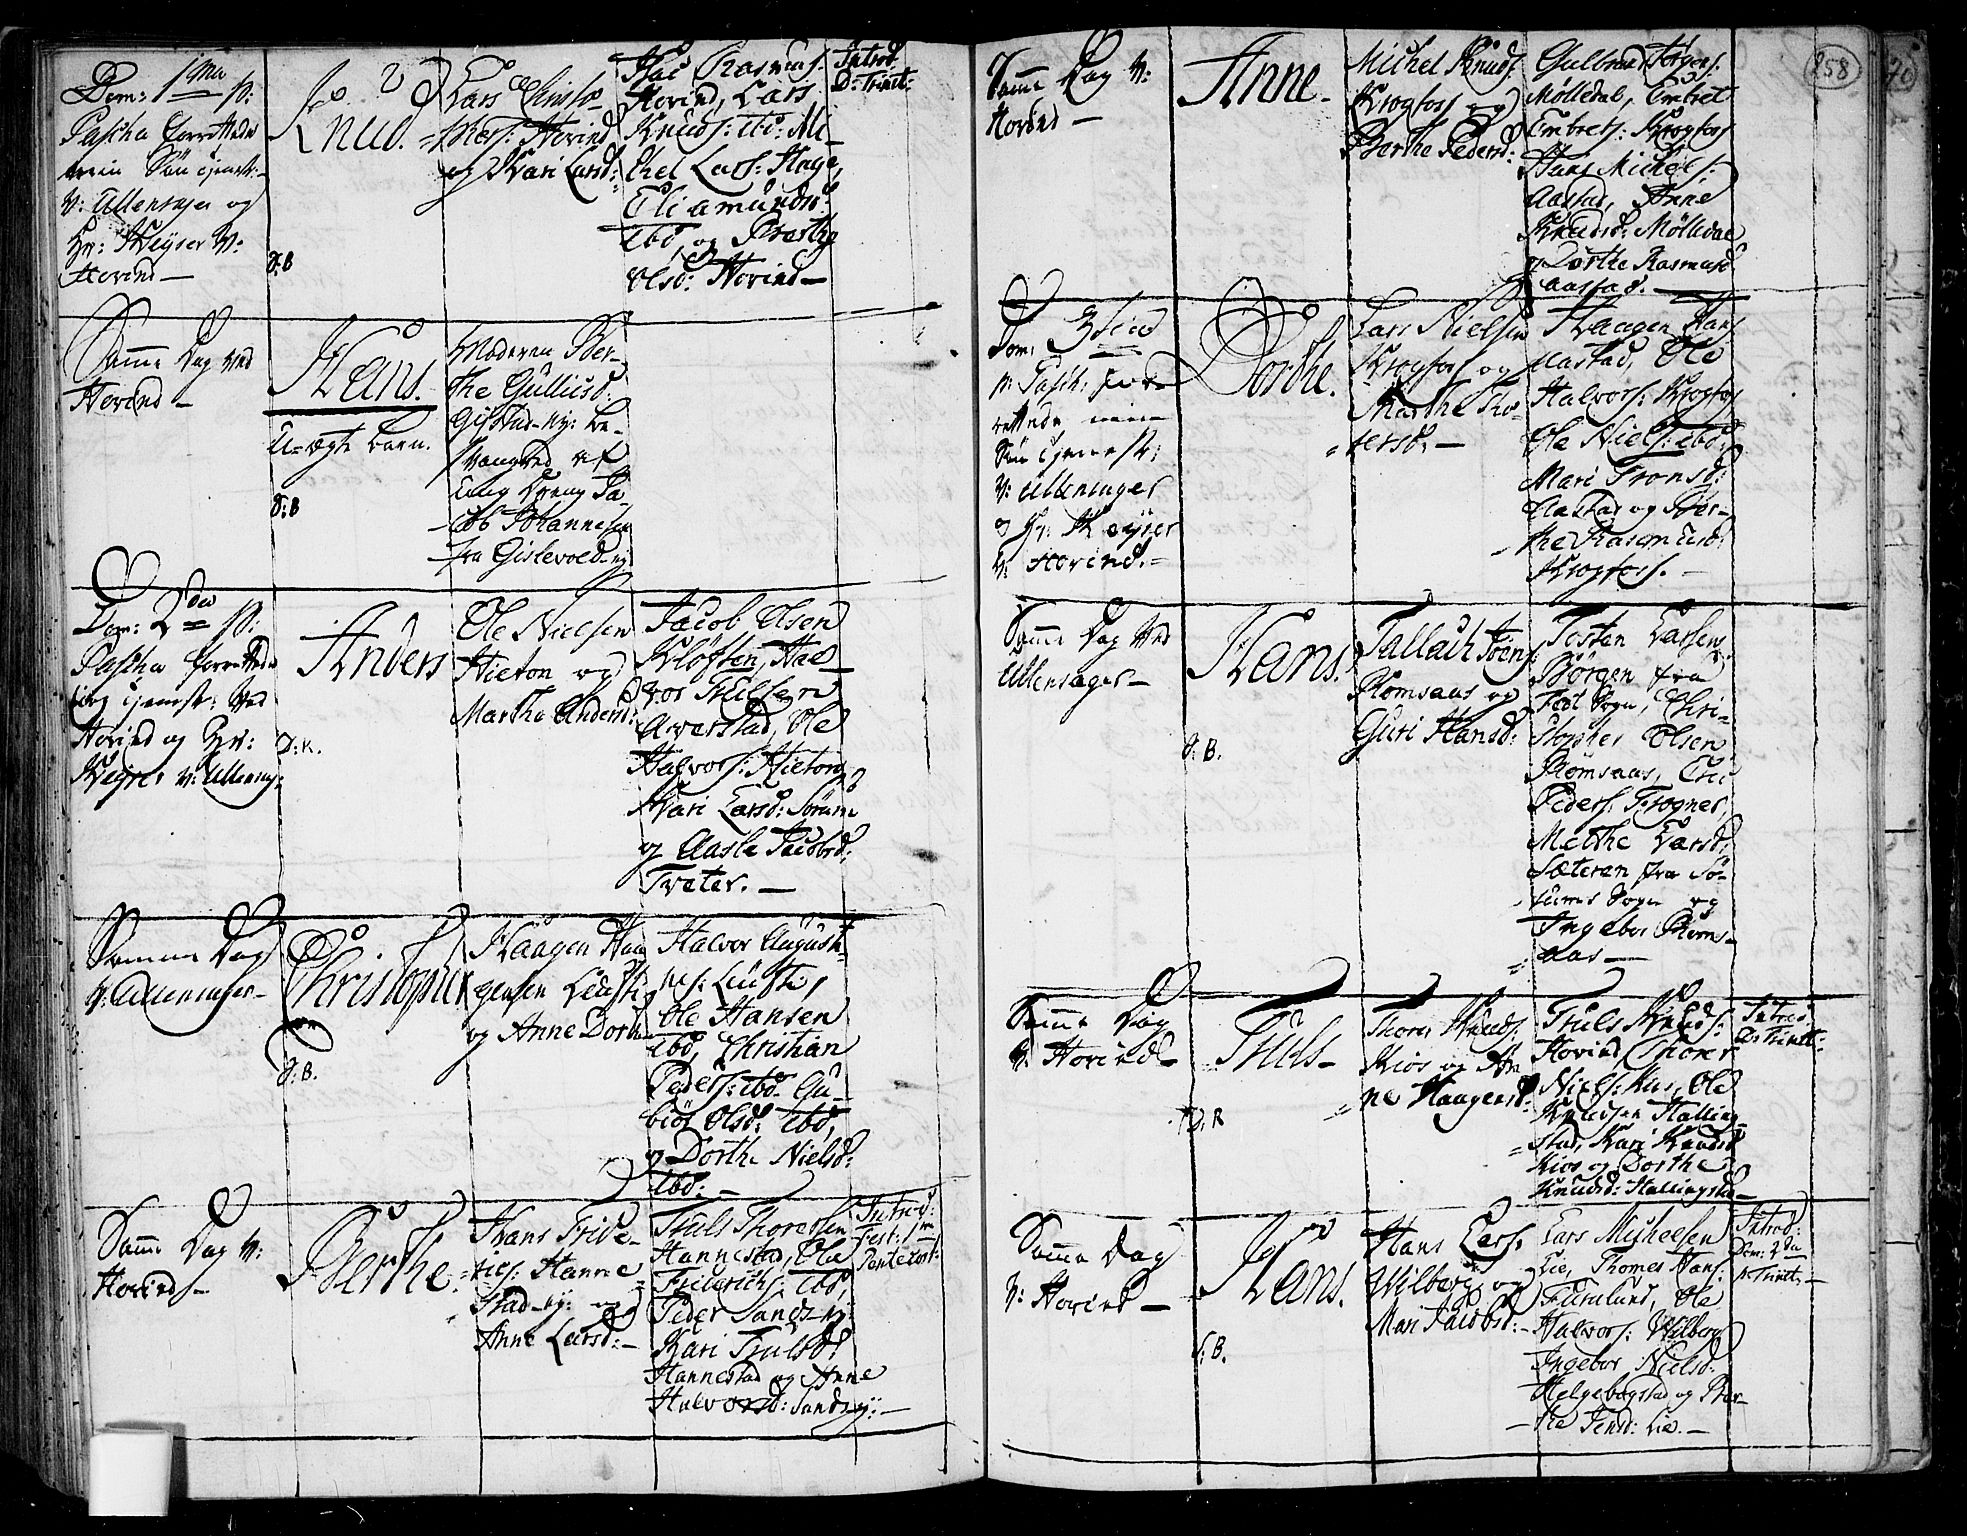 Dom: 1ma p:
Pascha forrettede
min Søn tjenest:
v: Ullensager og
Hr: Keyser v:
Hovind —
Knud.
d:B
Lars Christo-
phers: Hovind
og Kari Larsd:
Hac Rasmus.
Hovind, Lars
Knuds: ibd: Mi-
chel Lars: Hage,
Eli Amundsd:
ibd, og Berthe
Olsd: Hovind —
Introd:
D: Trinit:
Samme Dag ved
Hovind —
Hans.
U-ægte barn.
d:B
Moderen Ber-
the Gulliksd:
Gistad-ny: be-
svangred af
ung Dreng Ja-
cob Johannesen
fra Gislevold-ny
Dom: 2da p:
Pascha forrettede
jeg tjenest: ved
Hovind og Hr:
Keyser v: Ullensag:
Anders
D:K.
Ole Nielsen
Hieton og
Marthe Andersd:
Jacob Olsen
Kløften, Hal-
vor Trulsen
Averstad, Ole
Halvors: Hieton,
Kari Larsd: Sørum
og Aasle Jacobsd:
Tveter. —
Samme Dag
v: Ullensager —
Christopher
d:B.
Haagen Haa-
gensen Lauste
og Anne Dorth
Halvor August-
nes: Lauste,
Ole Hansen
ibd, Christian
Peders: ibd Gu-
biør Olsd: ibd,
og Dorthe Nielsd:
ibd: —
Samme Dag v:
Hovind —
Berthe.
Hans Fride-
rics: Hanne-
stad-ny: og
Anne Larsd: —
Truls Thoresen
Hannestad, Ole
Friderichs: ibd,
Peder Sands-ny:
Kari Trulsd:
Hannestad og Anne
Halvorsd: Sandsny: —
Introd:
Fest:
Pentecost:
158
Samme Dag v:
Hovind —
Anne —
Michel Knuds:
Krogfoss og
Berthe Pedersd:
Gulbrand Jørgens:
Mølledal, Embret
Embrets: Krogfoss
Hans Michels:
Aastad, Anne
Knudsd: Mølledal
og Dorthe Rasmusd
Aastad. —
Dom: 3tia
p: Pasch: for-
rettede min
Søn tjenest:
v: Ullensager
og Hr: Keyser
v: Hovind. —
Dorthe.
Lars Nielsen
Krogfoss og
Marthe Tho-
sersd. —
Haagen Hans
Aastad, Ole
Halvors: Krogfos
Ole Niels: ibd:
Mari Tronsd:
Aastad og Ber-
the Rasmusd:
Krogfoss. —
Samme Dag ved
Ullensager —
Hans.
d:B.
Tallach Joens:
Romsaas og
Guri Hansd:
Tosten Larsen
Børgen fra
Fedt Sogn, Chri-
stopher Olsen
Romsaas, Eric
Peders: Frogner,
Methe Larsd:
Sæteren fra Sø-
rums Sogn og
Ingebor Roms-
aas —
Samme Dag
v: Hovind —
Truls —
D:K
Thorer Knuds:
Kios og An-
ne Haagensd:
Truls Knuds:
Hovind Thorer
Niels: Kus, Ole
Knudsen Halling-
stad, Kari Knudsd
Kios og Dorthe
Knudsd: Hallingstad —
Introd:
D: Trinit:
Samme Dag
v: Hovind —
Hans.
d:B.
Hans Lars:
Wilberg og
Mari Jacobsd: —
Lars Michelsen
Lie, Thomes Hans:
Furulund, Ole
Halvors: Wilberg
Ingebor Nielsd:
Helgebogstad og Ber-
the Jensd: Lie. —
Introd:
Dom: 2da
p: Trinit: —